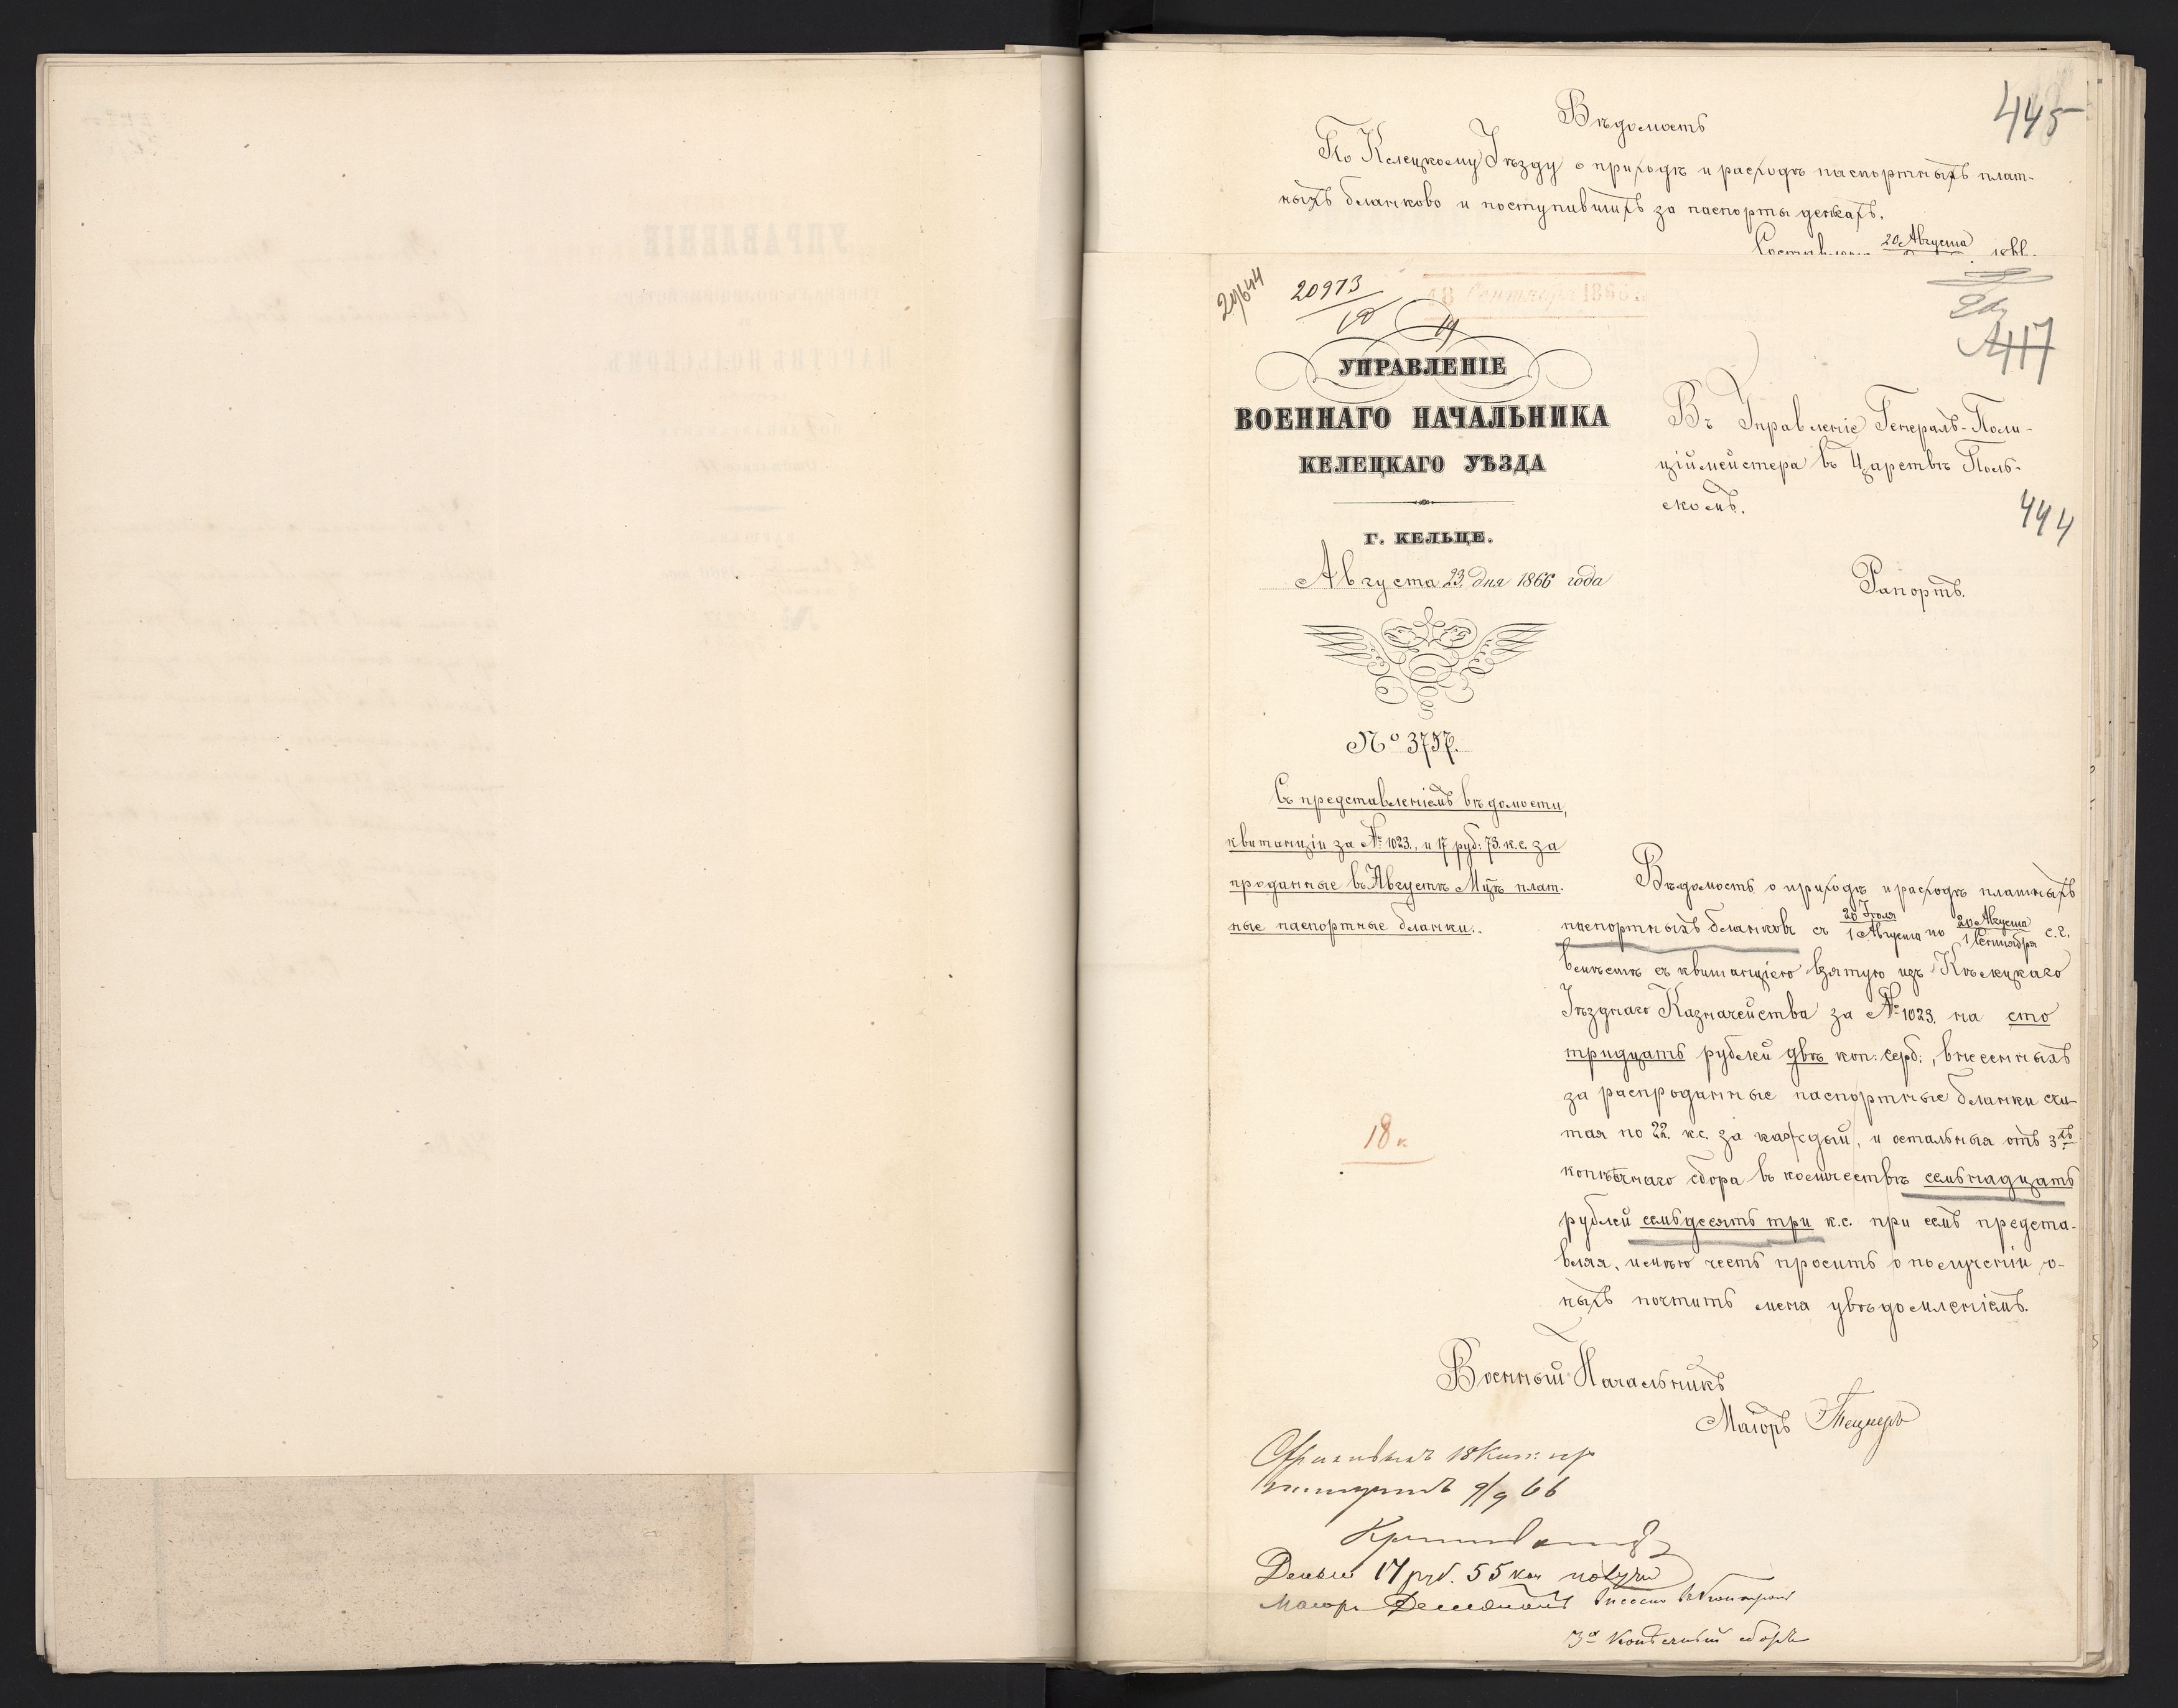 445
Вѣдомость
По Келецкому Уѣзду о приходѣ и расходѣ паспортныхъ плат-
ныхъ бланково и поступившихъ за паспорты денгахъ.
20 Августа 1866.
20644
20973
8 Сентября 1866
417
УПРАВЛЕНІЕ
ВОЕННАГО НАЧАЛЬНИКА
КЕЛЕЦКАГО УѢЗДА
Г. КЕЛЬЦЕ.
Августа 23 дня 1866 года
№ 3757.
Въ Управленіе Генералъ-Поли-
ційместера въ Царствѣ Поль-
скомъ.
444
Рапортъ.
Съ представленіемъ вѣдомости,
квитанціи за № 1023., и 17 руб: 73. к.с. за
проданные въ Августѣ Мцѣ плат-
ные паспортные бланки.
Вѣдомость о приходѣ и расходѣ платныхъ
паспортныхъ бланковъ съ 20 Іюля / 1 Августа по 20 Августа / 1 Сентября с.г.
вмѣстѣ съ квитанціею взятую изъ Кѣлецкаго
Уѣзднаго Казначейства за № 1023. на сто
тридцать рублей двѣ коп: серб:, внесенныхъ
за распроданные паспортные бланки счи-
тая по 22. к.с. за каждый, и остальныя отъ 3хъ
копѣечнаго сбора въ количествѣ семьнадцать
рублей семьдесятъ три к.с. при семъ предста-
вляя, имѣю честь просить о полученіи о-
ныхъ почтить меня увѣдомленіемъ.
18 к
Военный Начальникъ
Маіоръ
18 Коп:
9/9 66
Деньги 17 руб. 55 коп
Маіоръ
3х Копѣечный сборъ